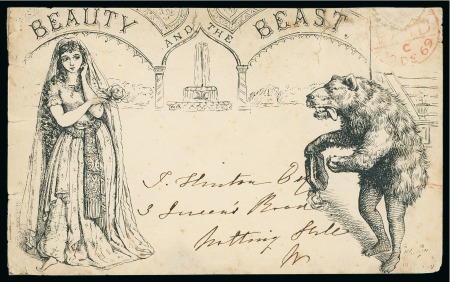 BEAUTY AND THE BEAST.
C
DE 69
Esq
3 Queen's Road
Notting Hill
W